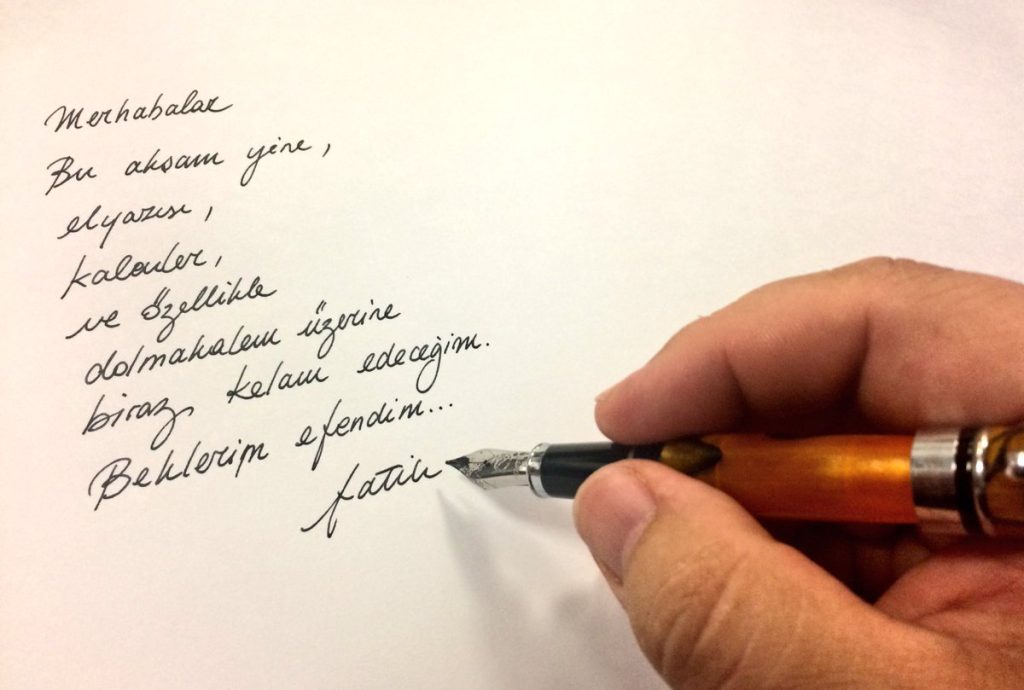 Merhabalar
Bu akşam yine,
elyazısı,
kalemler,
ve özellikle
dolmakalem üzerine
biraz kelam edeceğim.
Beklerim efendim...
fatih